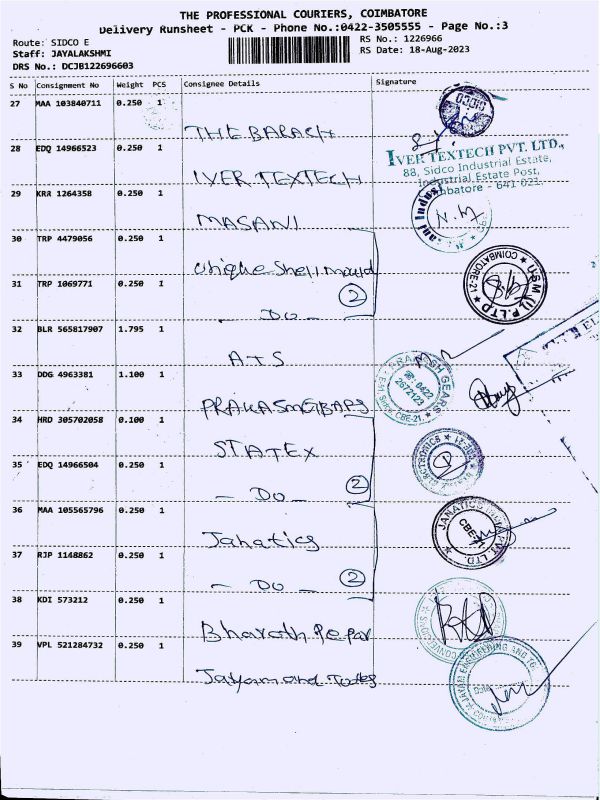 THE PROFESSIONAL COURIERS, COIMBATORE
Delivery Runsheet - PCK - Phone No.:0422-3505555 - Page No.:3
Route: SIDCO E
RS No.: 1226966
Staff: JAYALAKSHMI
RS Date: 18-Aug-2023
DRS No.: DCJB122696603
S No Consignment No Weight PCS Consignee Details Signature
27 MAA 103840711 0.250 1
THE BARASH
SIDCO
28 EDQ 14966523 0.250 1
IVER TEXTECH
IVER TEXTECH PVT. LTD.,
88, Sidco Industrial Estate,
Industrial Estate Post,
Coimbatore - 641 021.
29 KRR 1264358 0.250 1
MASANI
N.M
30 TRP 4479056 0.250 1
Unique Shell mould
31 TRP 1069771 0.250 1
2
- DO -
USM (I) P.LTD
COIMBATORE-21
32 BLR 565817907 1.795 1
ATS
33 DDG 4963381 1.100 1
PRAKASH GEARS
0422
2672123
CBE-21.
34 HRD 305702058 0.100 1
STATEX
35 EDQ 14966504 0.250 1
- DO - 2
ELECTRONICS
36 MAA 105565796 0.250 1
Janatics
JANATICS INDIA PVT LTD.
CBE
37 RJP 1148862 0.250 1
- DO - 2
38 KDI 573212 0.250 1
Bharath Pepar
39 VPL 521284732 0.250 1
Jayam and Tools